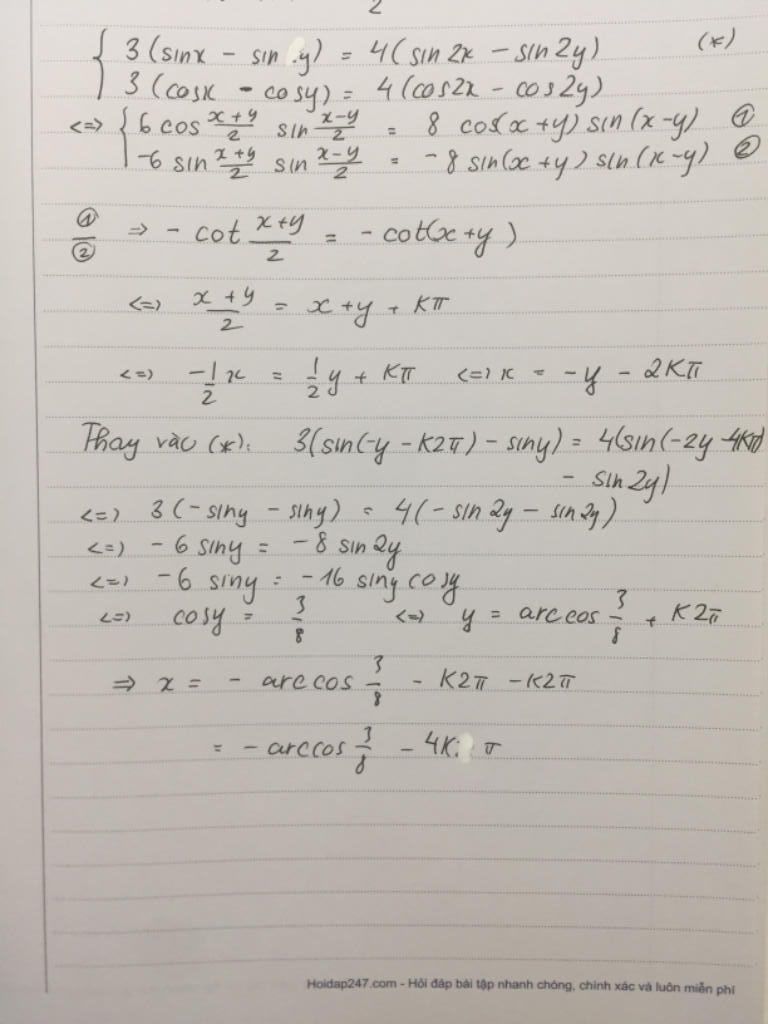 2
3(sinx - sin y) = 4(sin2x - sin2y) (*)
3(cosx - cosy) = 4(cos2x - cos2y)
<=> 6 cos x+y/2 sin x-y/2 = 8 cos(x+y) sin(x-y) ①
-6 sin x+y/2 sin x-y/2 = -8 sin(x+y) sin(x-y) ②
①/② => - cot x+y/2 = - cot(x+y)
<=> x+y/2 = x+y + Kπ
<=> -1/2 x = 1/2 y + Kπ <=> x = -y - 2Kπ
Thay vào (*): 3(sin(-y - K2π) - siny) = 4(sin(-2y - 4Kπ)
- sin2y)
<=> 3(-siny - siny) = 4(-sin2y - sin2y)
<=> -6 siny = -8 sin2y
<=> -6 siny = -16 siny cosy
<=> cosy = 3/8 <=> y = arccos 3/8 + K2π
=> x = - arccos 3/8 - K2π - K2π
= - arccos 3/8 - 4K π
Hoidap247.com - Hỏi đáp bài tập nhanh chóng, chính xác và luôn miễn phí